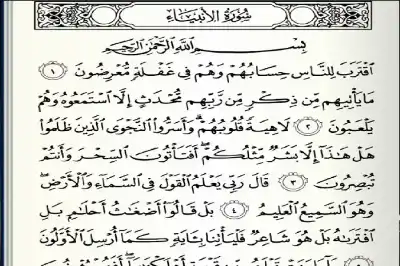 سُورَةُ الأَنبِيَاءِ
بِسْمِ اللَّهِ الرَّحْمَٰنِ الرَّحِيمِ
ٱقْتَرَبَ لِلنَّاسِ حِسَابُهُمْ وَهُمْ فِى غَفْلَةٍ مُّعْرِضُونَ ١
مَا يَأْتِيهِم مِّن ذِكْرٍ مِّن رَّبِّهِم مُّحْدَثٍ إِلَّا ٱسْتَمَعُوهُ وَهُمْ
يَلْعَبُونَ ٢ لَاهِيَةً قُلُوبُهُمْ ۗ وَأَسَرُّوا۟ ٱلنَّجْوَى ٱلَّذِينَ ظَلَمُوا۟
هَلْ هَٰذَآ إِلَّا بَشَرٌ مِّثْلُكُمْ ۖ أَفَتَأْتُونَ ٱلسِّحْرَ وَأَنتُمْ
تُبْصِرُونَ ٣ قَالَ رَبِّى يَعْلَمُ ٱلْقَوْلَ فِى ٱلسَّمَآءِ وَٱلْأَرْضِ ۖ
وَهُوَ ٱلسَّمِيعُ ٱلْعَلِيمُ ٤ بَلْ قَالُوٓا۟ أَضْغَٰثُ أَحْلَٰمٍۭ بَلِ
ٱفْتَرَىٰهُ بَلْ هُوَ شَاعِرٌ فَلْيَأْتِنَا بِـَٔايَةٍ كَمَآ أُرْسِلَ ٱلْأَوَّلُونَ